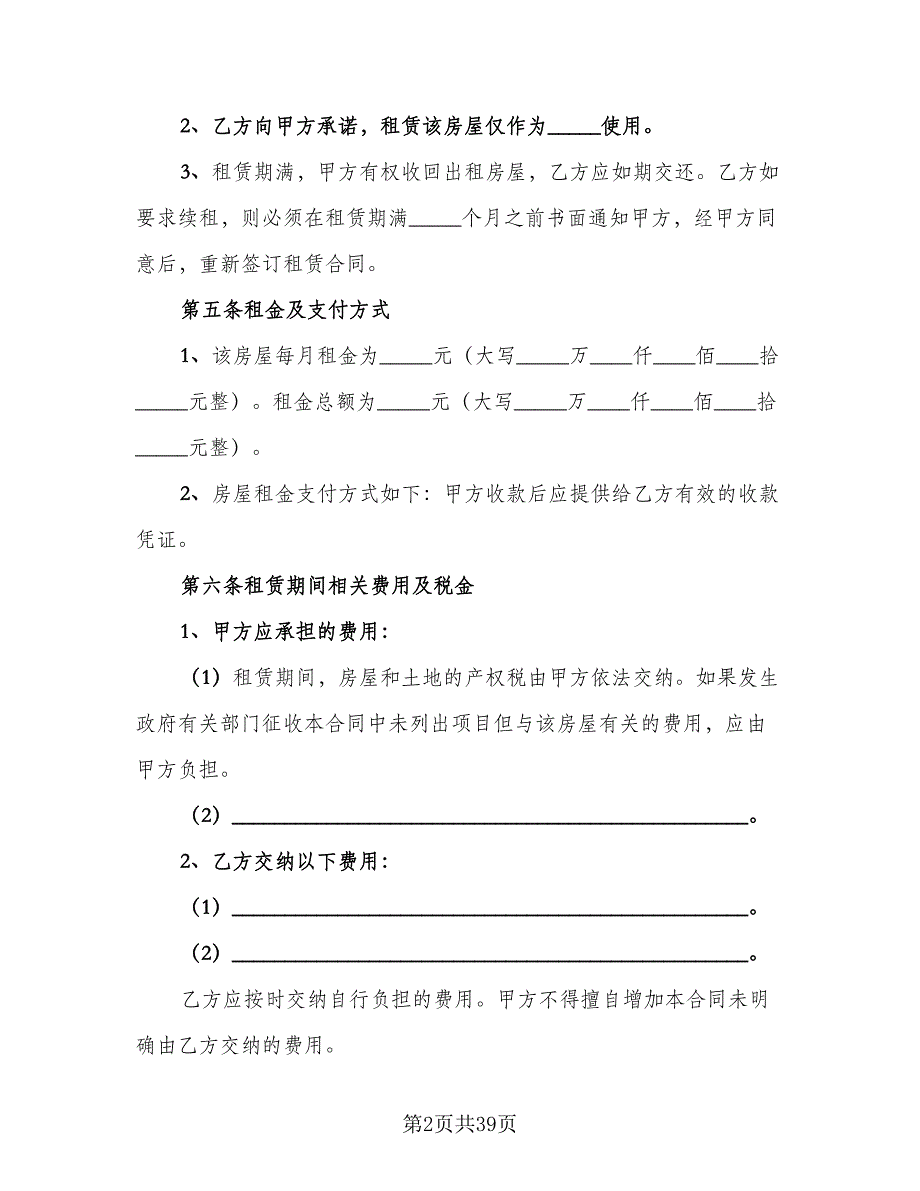 2、乙方向甲方承诺，租赁该房屋仅作为_____使用。
3、租赁期满，甲方有权收回出租房屋，乙方应如期交还。乙方如
要求续租，则必须在租赁期满_____个月之前书面通知甲方，经甲方同
意后，重新签订租赁合同。
第五条租金及支付方式
1、该房屋每月租金为_____元（大写_____万____仟____佰____拾
_____元整）。租金总额为_____元（大写_____万____仟____佰____拾
_____元整）。
2、房屋租金支付方式如下：甲方收款后应提供给乙方有效的收款
凭证。
第六条租赁期间相关费用及税金
1、甲方应承担的费用：
（1）租赁期间，房屋和土地的产权税由甲方依法交纳。如果发生
政府有关部门征收本合同中未列出项目但与该房屋有关的费用，应由
甲方负担。
（2）_________________________________________________。
2、乙方交纳以下费用：
（1）_________________________________________________。
（2）_________________________________________________。
乙方应按时交纳自行负担的费用。甲方不得擅自增加本合同未明
确由乙方交纳的费用。
第2页共39页